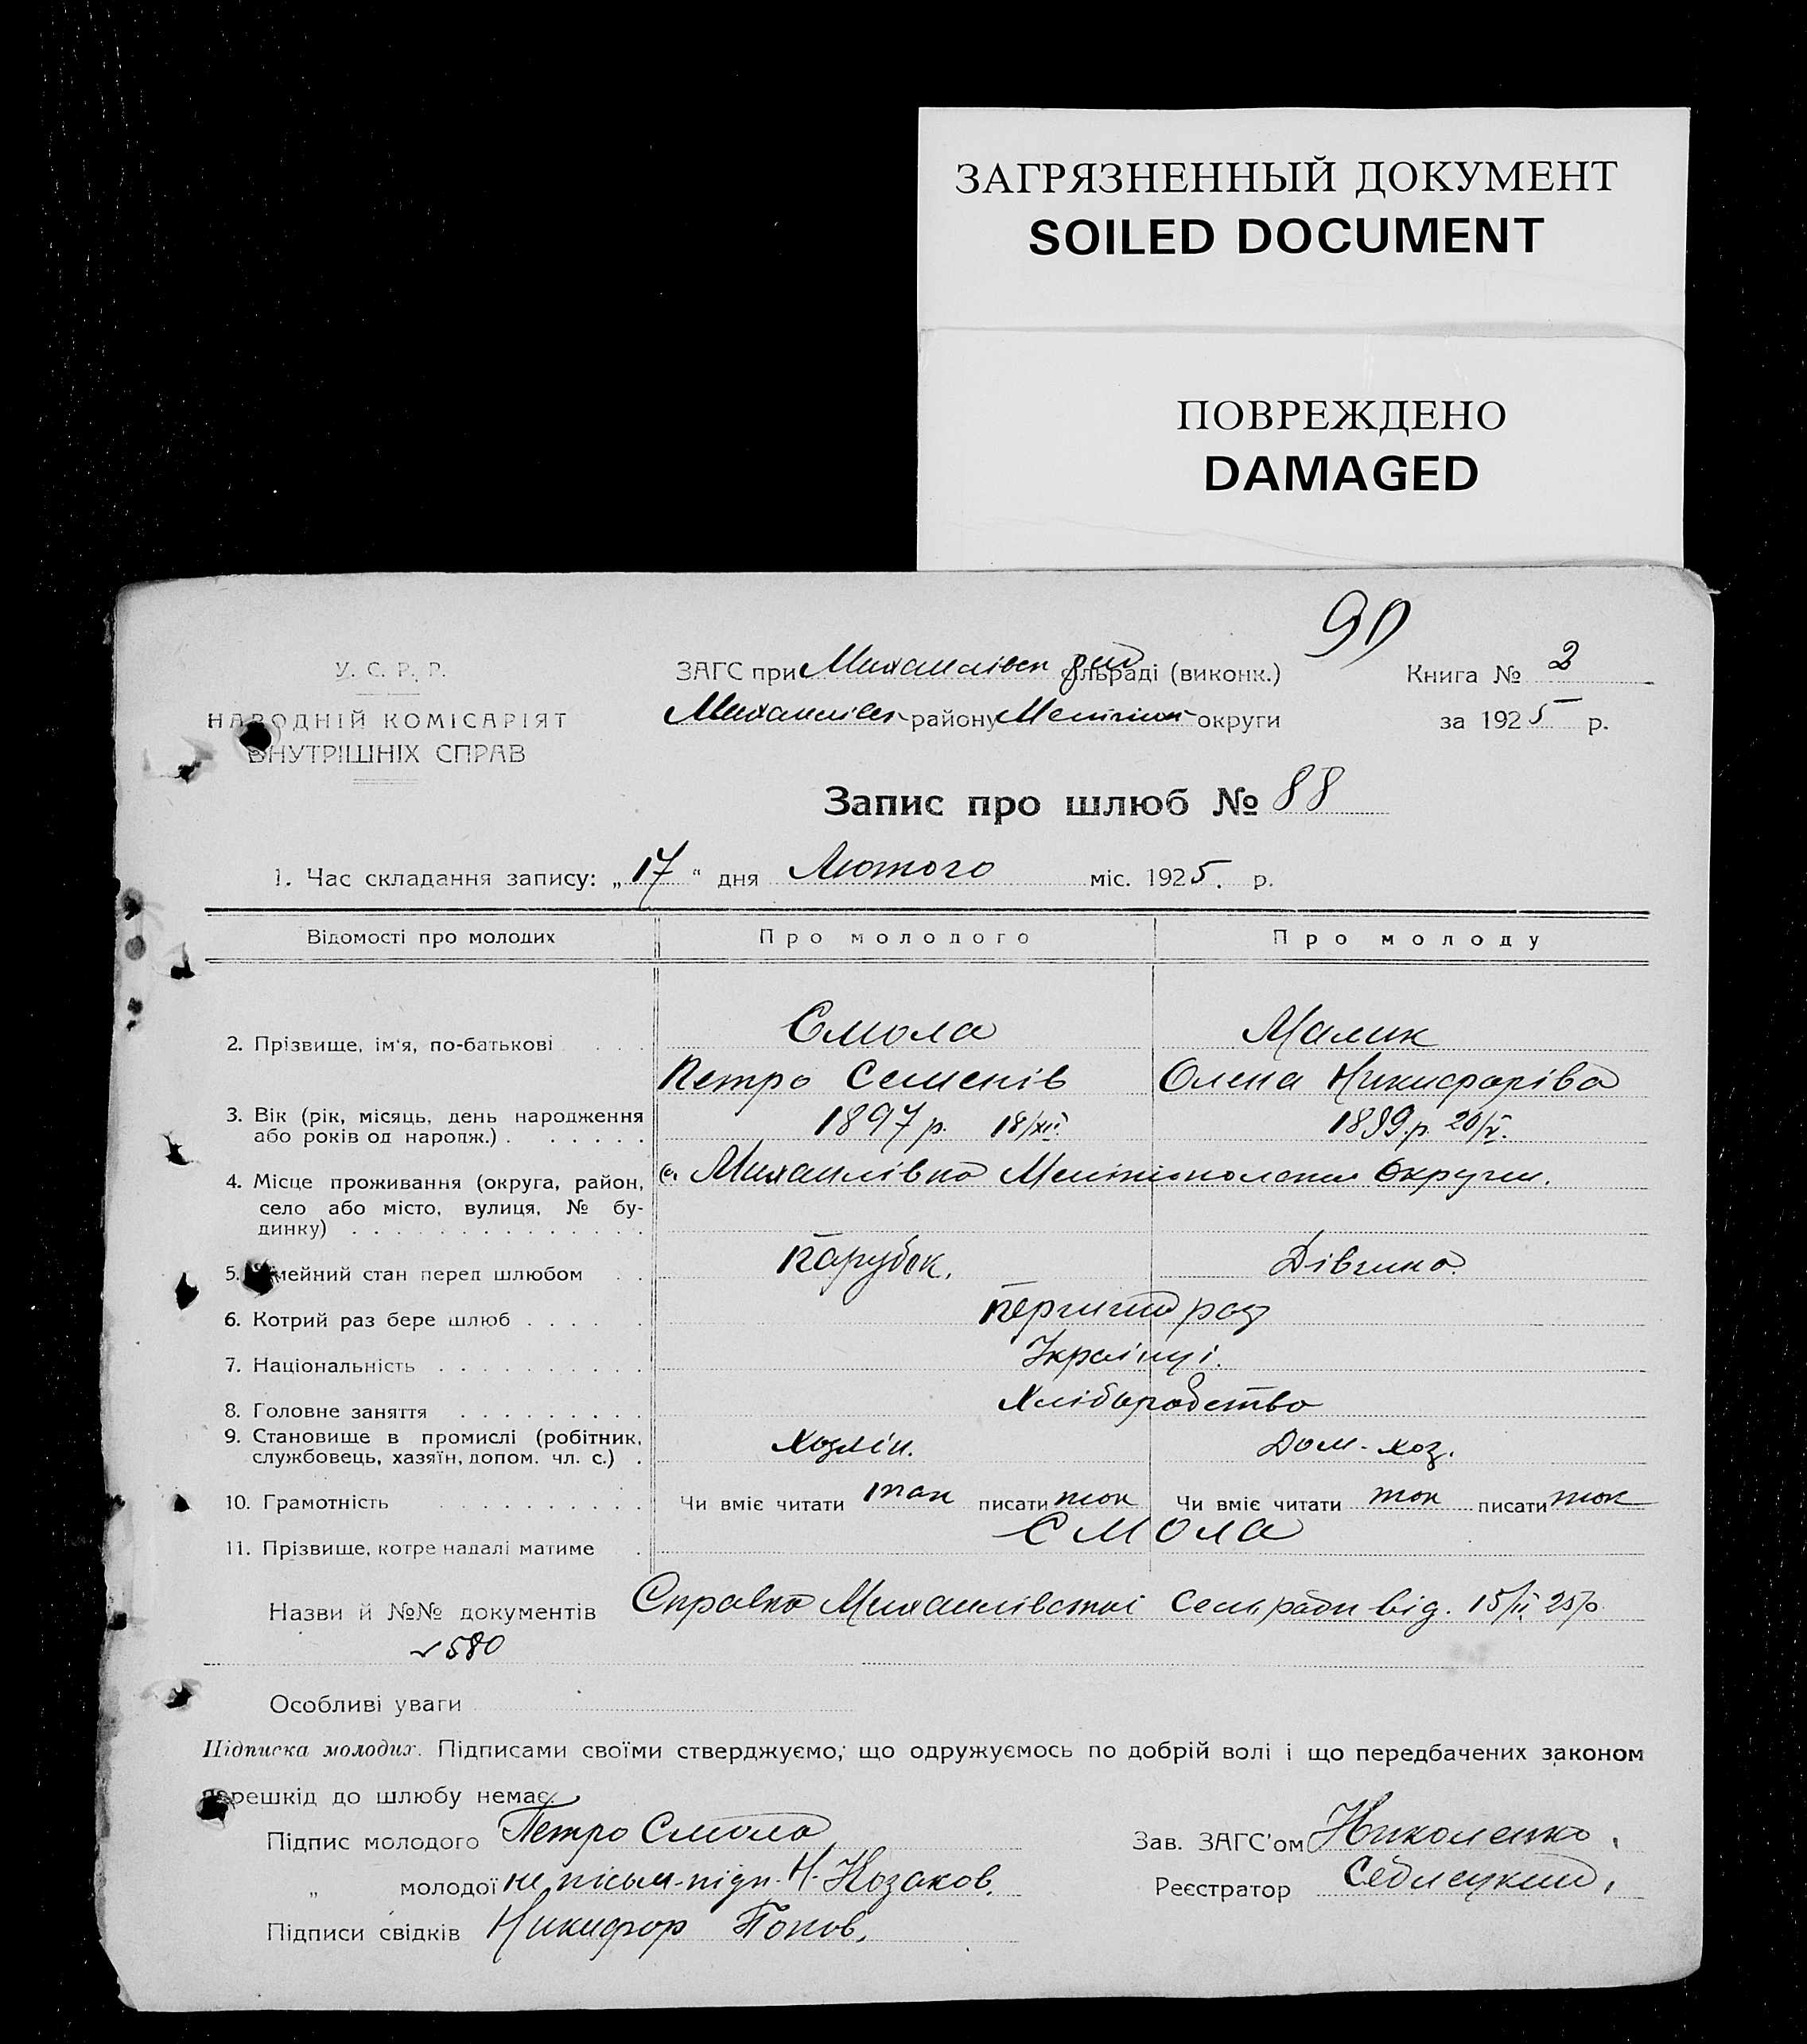 ЗАГРЯЗНЕННЫЙ ДОКУМЕНТ
SOILED DOCUMENT
ПОВРЕЖДЕНО
DAMAGED
90
У. С. Р. Р.
НАРОДНІЙ КОМІСАРІЯТ
ВНУТРІШНІХ СПРАВ
ЗАГС при Михайлівск рай сільраді (виконк.)
Михайлівск району Меліт округи
Книга № 2
за 1925 р.
Запис про шлюб № 88
1. Час складання запису: „17“ дня Лютого міс. 1925. р.
Відомості про молодих Про молодого Про молоду
2. Прізвище, ім'я, по-батькові Смола Малик
Петро Семенів Олена Никифоріва
3. Вік (рік, місяць, день народження або років од народж.) 1897 р. 18/XII. 1899.р. 20/V.
4. Місце проживання (округа, район, село або місто, вулиця, № будинку) с. Михайлівка Мелітопольської Округи.
5. Сімейний стан перед шлюбом Парубок. Дівчина.
6. Котрий раз бере шлюб перший раз
7. Національність Українці.
8. Головне заняття Хліборобство
9. Становище в промислі (робітник, службовець, хазяїн, допом. чл. с.) Хозяїн. Дом-хоз.
10. Грамотність Чи вміє читати так писати так Чи вміє читати так писати так
11. Прізвище, котре надалі матиме Смола
Назви й №№ документів Справка Михайлівської Сельради від. 15/II 25 р.
580
Особливі уваги
Підписка молодих. Підписами своїми стверджуємо, що одружуємось по добрій волі і що передбачених законом
перешкід до шлюбу немає.
Підпис молодого Петро Смола
„ молодої не письм-підп. Н. Козаков.
Підписи свідків Никифор Попов.
Зав. ЗАГС'ом Николенко.
Реєстратор Седлецкий.